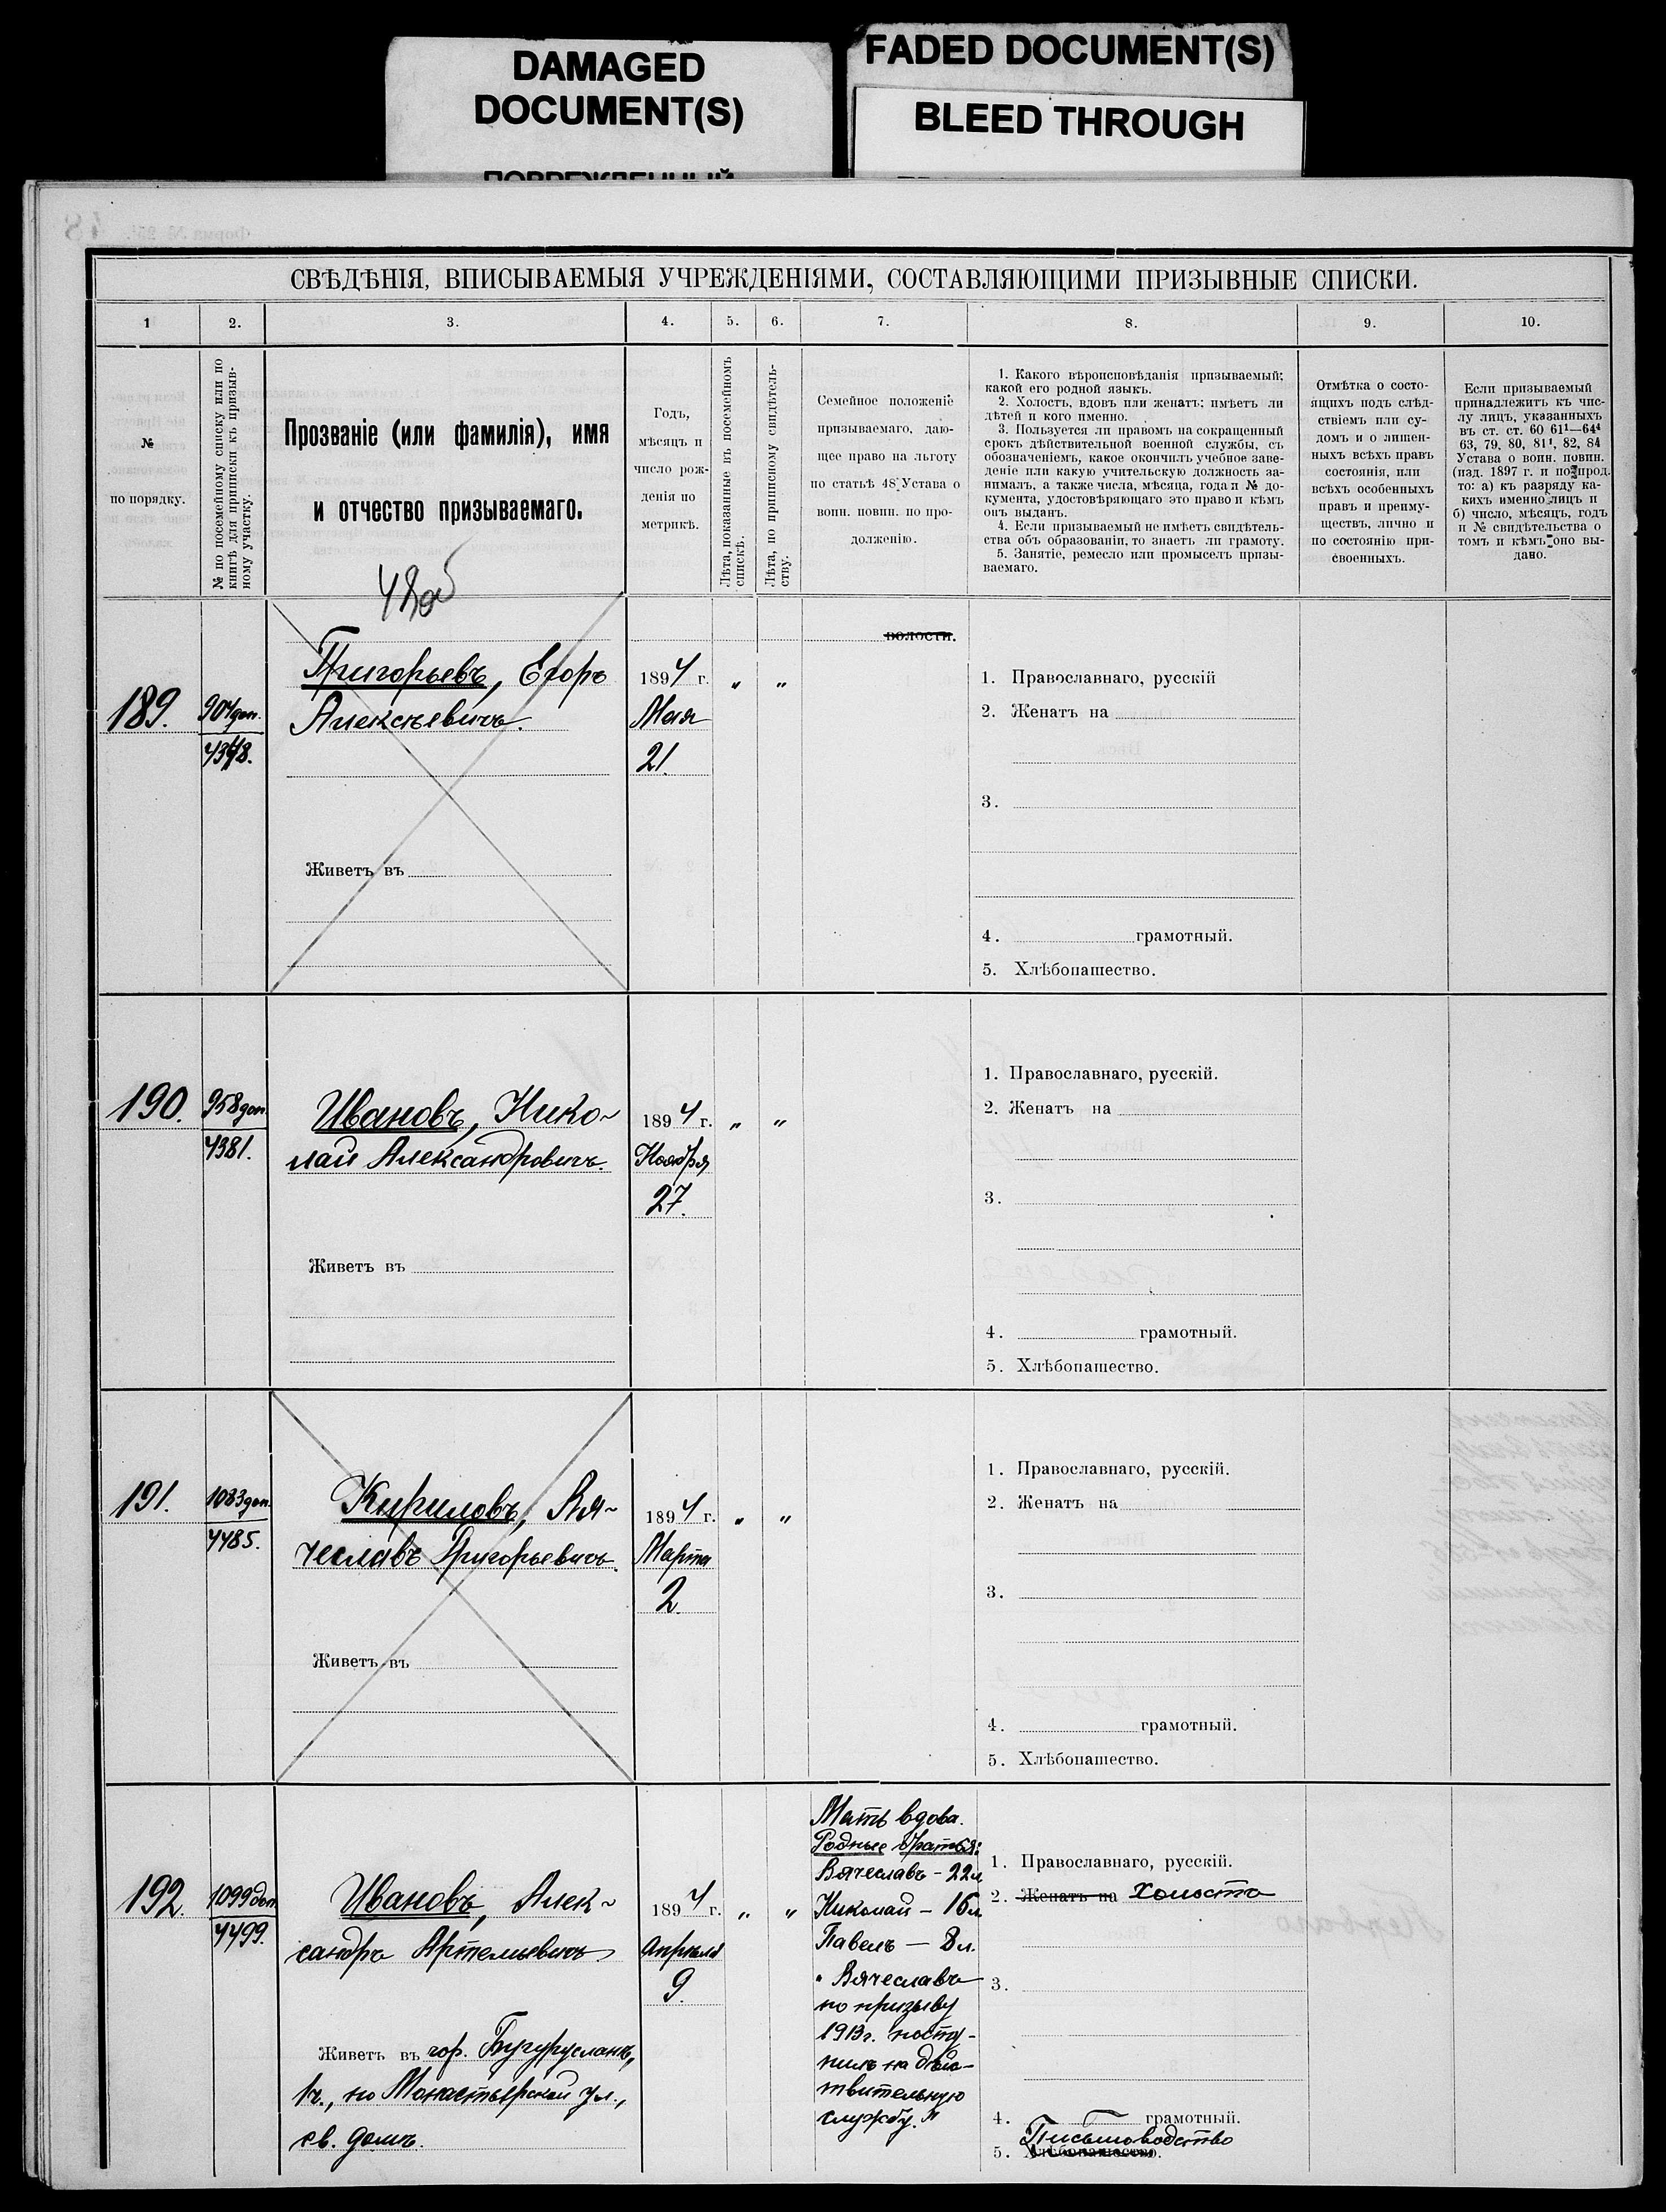 DAMAGED
DOCUMENT(S)
FADED DOCUMENT(S)
BLEED THROUGH
СВѢДѢНІЯ, ВПИСЫВАЕМЫЯ УЧРЕЖДЕНІЯМИ, СОСТАВЛЯЮЩИМИ ПРИЗЫВНЫЕ СПИСКИ.
1
2.
3.
4.
5.
6.
7.
8.
9.
10.
№
по порядку.
№ по посемейному списку или по
книгѣ для приписки къ призыв-
ному участку.
Прозваніе (или фамилія), имя
и отчество призываемаго.
Годъ,
мѣсяцъ и
число рож-
денія по
метрикѣ.
Лѣта, показанные въ посемейномъ
спискѣ.
Лѣта, по приписному свидѣтель-
ству.
Семейное положеніе
призываемаго, даю-
щее право на льготу
по статьѣ 48 Устава о
воин. повин. по про-
долженію.
1. Какого вѣроисповѣданія призываемый;
какой его родной языкъ.
2. Холостъ, вдовъ или женатъ; имѣетъ ли
дѣтей и кого именно.
3. Пользуется ли правомъ на сокращенный
срокъ дѣйствительной военной службы, съ
обозначеніемъ, какое окончилъ учебное заве-
деніе или какую учительскую должность за-
нималъ, а также числа, мѣсяца, года и № до-
кумента, удостовѣряющаго это право и кѣмъ
онъ выданъ.
4. Если призываемый не имѣетъ свидѣтель-
ства объ образованіи, то знаетъ ли грамоту.
5. Занятіе, ремесло или промыселъ призы-
ваемаго.
Отмѣтка о состо-
ящихъ подъ слѣд-
ствіемъ или су-
домъ и о лишен-
ныхъ всѣхъ правъ
состоянія, или
всѣхъ особенныхъ
правъ и преиму-
ществъ, лично и
по состоянію при-
своенныхъ.
Если призываемый
принадлежитъ къ чис-
лу лицъ, указанныхъ
въ ст. ст. 60 61¹—64⁴
63, 79, 80, 81¹, 82, 84
Устава о воин. повин.
(изд. 1897 г. и по прод.
то: а) къ разряду ка-
кихъ именно лицъ и
б) число, мѣсяцъ, годъ
и № свидѣтельства о
томъ и кѣмъ оно вы-
дано.
волости.
189.
904 доп.
Григорьевъ, Егоръ
Алексѣевичъ.
1894 г.
Мая
21.
" "
Живетъ въ
1. Православнаго, русскій
2. Женатъ на
3.
4. грамотный.
5. Хлѣбопашество.
190.
958 доп.
4381.
Ивановъ, Нико-
лай Александровичъ.
1894 г.
Ноября
27.
" "
Живетъ въ
1. Православнаго, русскій.
2. Женатъ на
3.
4. грамотный.
5. Хлѣбопашество.
191.
1083 доп.
4485.
Кириловъ, Вя-
чеславъ Григорьевичъ.
1894 г.
Марта
2.
" "
Живетъ въ
1. Православнаго, русскій.
2. Женатъ на
3.
4. грамотный.
5. Хлѣбопашество.
192.
1099 доп.
4499.
Ивановъ, Алек-
сандръ Артемьевичъ
Живетъ въ гор. Бугурусланѣ,
1 ч., по Монастырской ул.,
св. домъ.
1894 г.
Апрѣля
9.
" "
Мать вдова.
Родные братья:
Вячеславъ - 22 л
Николай - 16 л.
Павелъ — 8 л.
" Вячеславъ
по призыву
1913 г. посту-
пилъ на дѣйс-
твительную
службу. "
1. Православнаго, русскій.
2. Женатъ на холостъ
3.
4. грамотный.
Письмоводство
5. Хлѣбопашество.